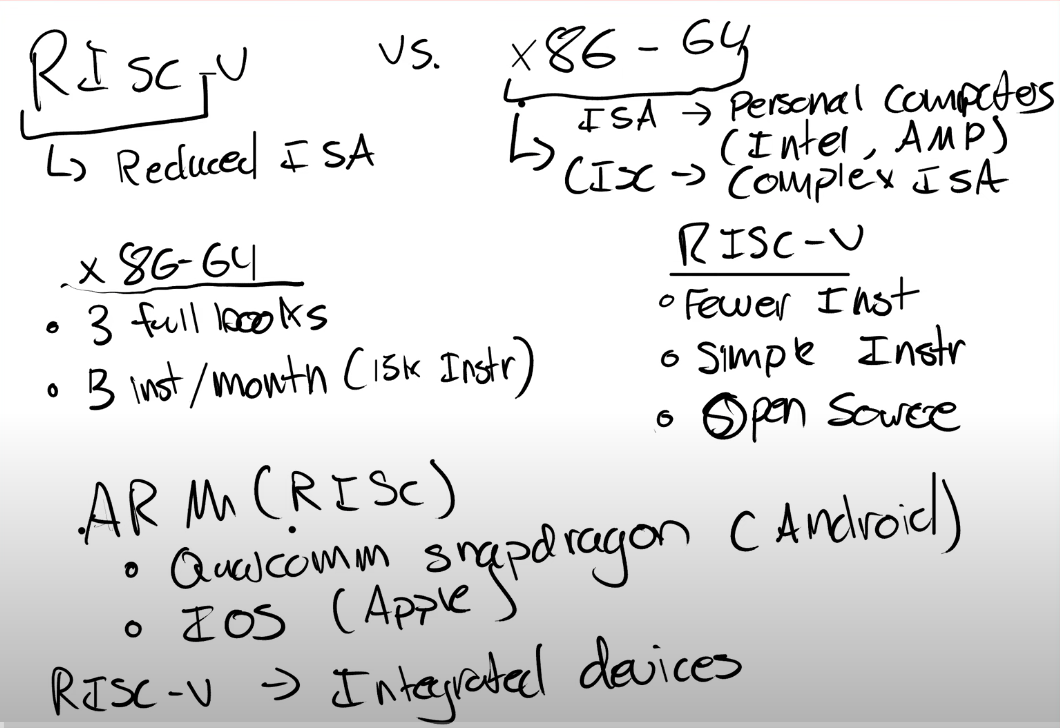 RISC-V vs. x86-64
↳ Reduced ISA
ISA → Personal Computers
(Intel, AMP)
↳ CISC → Complex ISA
x86-64
• 3 full books
• 3 inst/month (15k Instr)
RISC-V
• Fewer Inst
• Simple Instr
• Open Source
ARM (RISC)
• Qualcomm snapdragon (Android)
• IOS (Apple)
RISC-V → Integrated devices